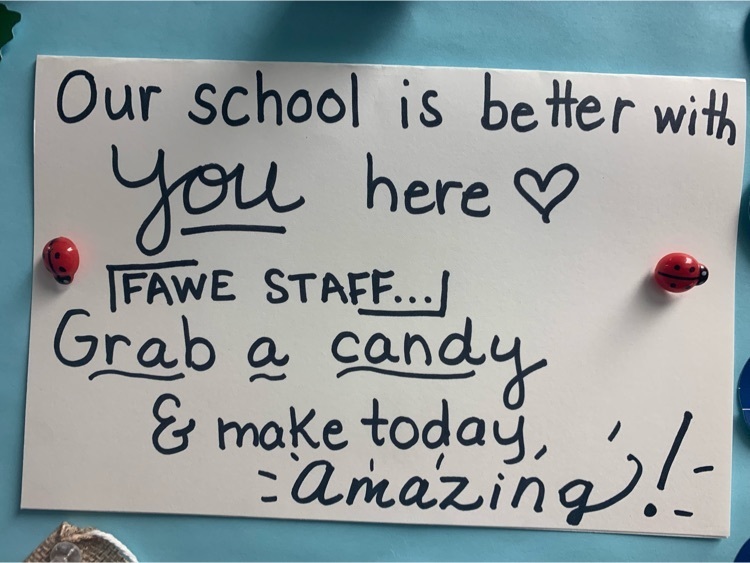 Our school is better with
you here ♡
FAWE STAFF...
Grab a candy
& make today,
amazing!